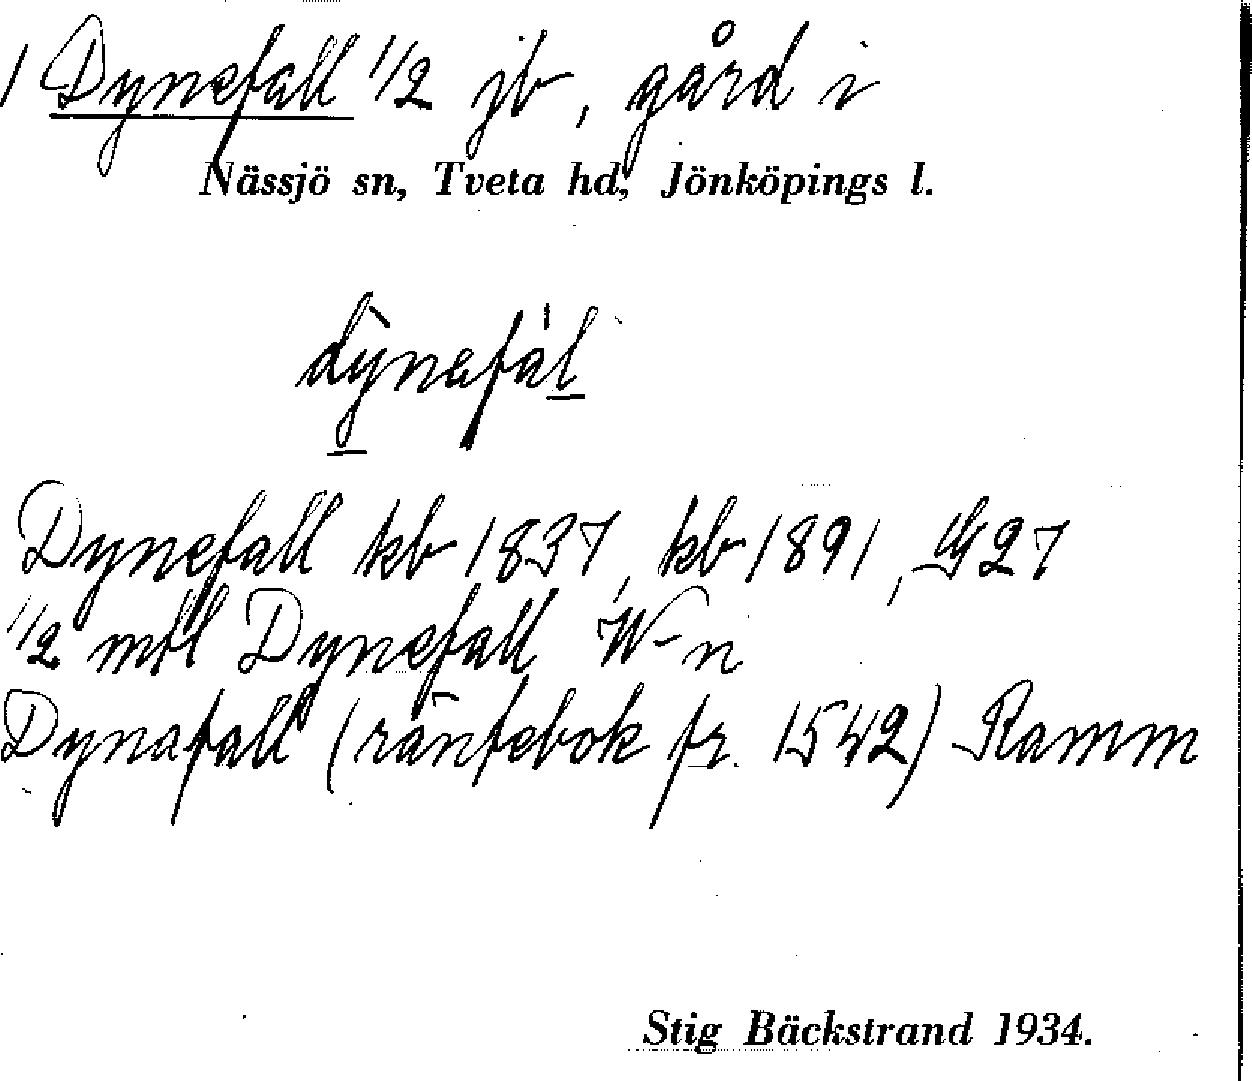 1 Dynefall 1/2 jb, gård i
Nässjö sn, Tveta hd, Jönköpings l.
dỳnafál
Dynefall kb 1837, kb 1891, G27
1/2 mtl Dynefall W-n
Dynafall (räntebok fr. 1542) Ramm
Stig Bäckstrand 1934.